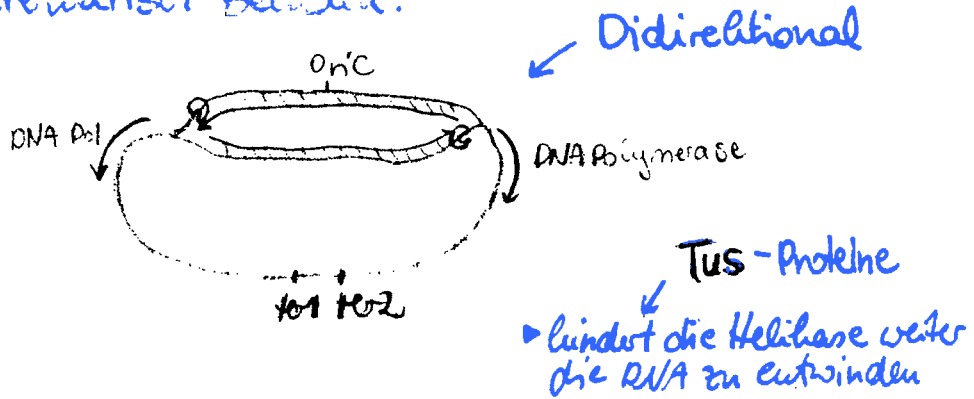 Didirektional
OriC
DNA Pol
DNA Polymerase
Tus - Proteine
ter1 ter2
▸ hindert die Helikase weiter
die DNA zu entwinden